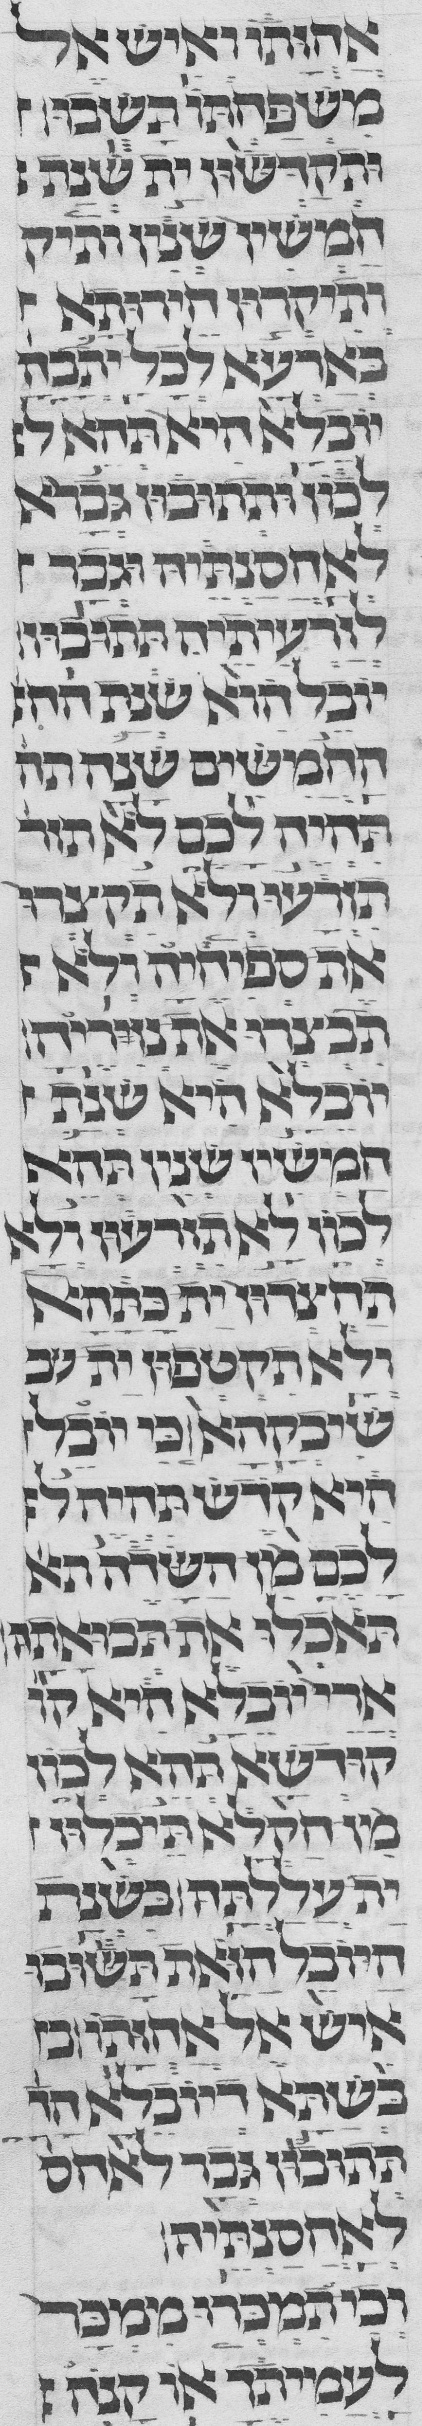 אחוזתו ואיש אל
משפחתו תשבו
ותקדשון ית שנת
חמשין שנין ותיק
ותיקרון חירותא
בארעא לכל יתבה
יובלא היא תהא ל
לכון ותתובון גברא
לאחסנתיה וגבר
לזרעיתיה תתובון
יובל הוא שנת
החמשים שנה תה
תהיה לכם לא תזר
תזרעו ולא תקצרו
את ספיחיה ולא
תבצרו את נזריה
יובלא היא שנת
חמשין שנין תהא
לכון לא תזרעון ולא
תחצדון ית כתהא
ולא תקטפון ית ענ
שיבקהא כי יובל
היא קדש תהיה ל
לכם מן השדה תא
תאכלו את תבואתה
ארי יובלא היא קו
קודשא תהא לכון
מן חקלא תיכלון
ית עללתה בשנת
היובל הזאת תשובו
איש אל אחוזתו
בשתא דיובלא הד
תתובון גבר לאחס
לאחסנתיה
וכי תמכרו ממכר
לעמיתך או קנה